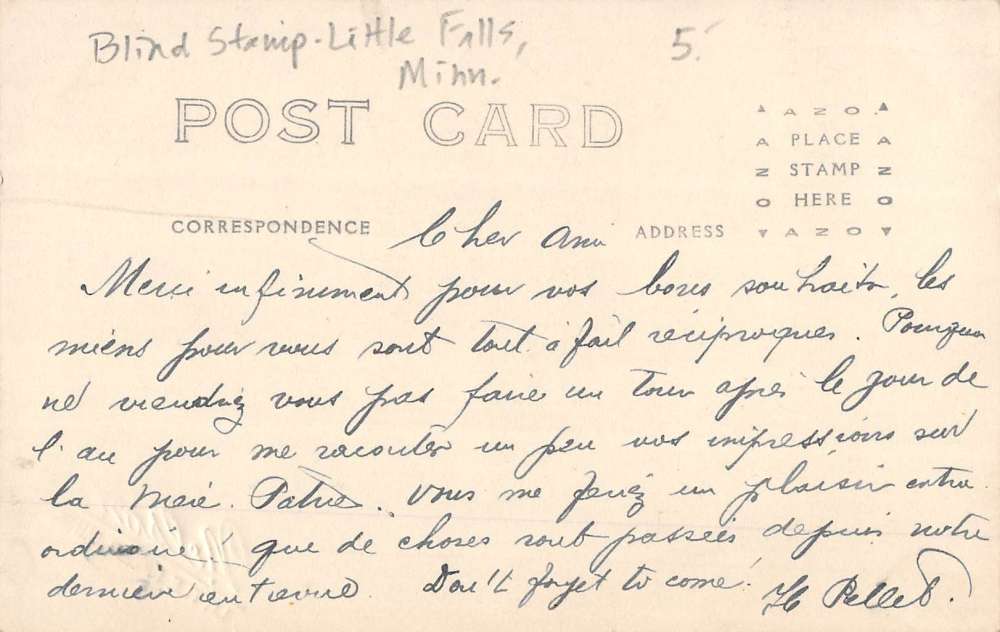 Blind Stamp-Little Falls,
Minn.
5.
POST CARD
AZO
PLACE
STAMP
HERE
AZO
CORRESPONDENCE
ADDRESS
Cher Ami
Merci infiniment pour vos bons souhaits, les
miens pour vous sont tout à fait réciproques. Pourquoi
ne viendriez vous pas faire un tour après le jour de
l'an pour me raconter un peu vos impressions sur
la Mère Patrie. Vous me feriez un plaisir extra
ordinaire! que de choses sont passées depuis notre
dernière entrevue. Don't forget to come!